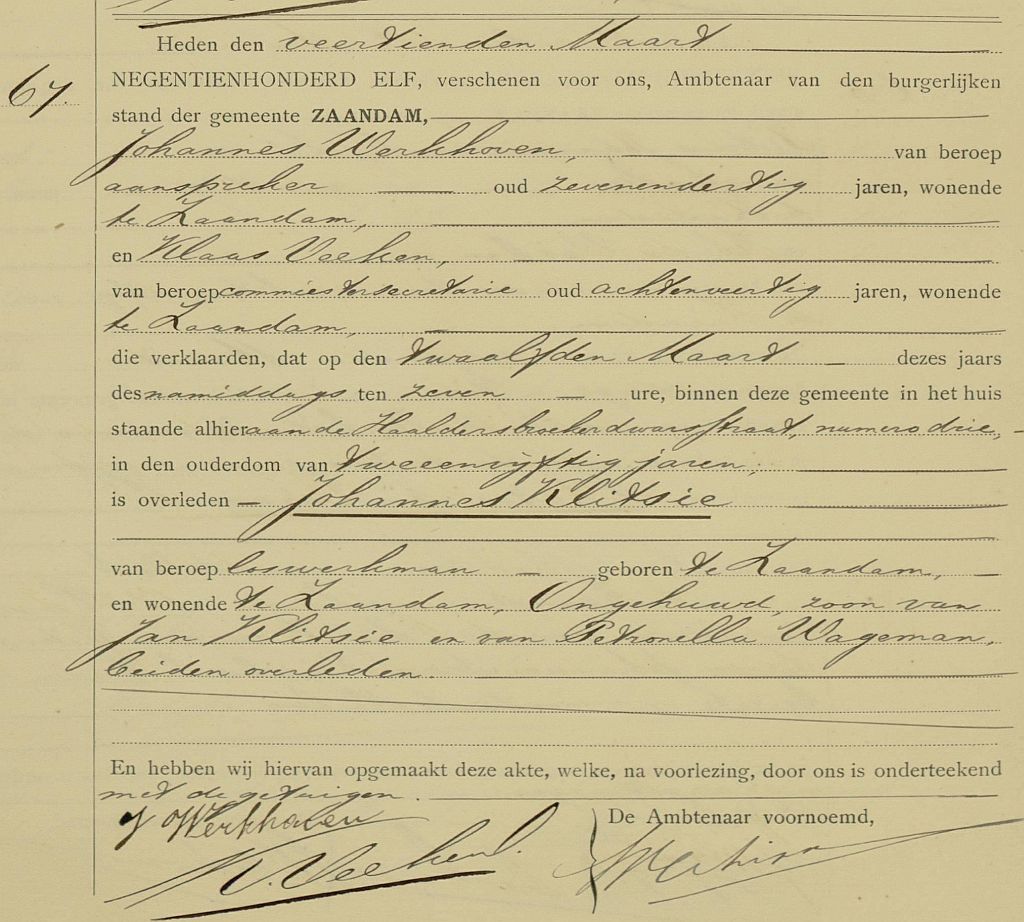 Heden den veertienden Maart
67.
NEGENTIENHONDERD ELF, verschenen voor ons, Ambtenaar van den burgerlijken
stand der gemeente ZAANDAM,
Johannes Werkhoven, van beroep
aanspreker oud zevenendertig jaren, wonende
te Zaandam,
en Klaas Veeken,
van beroep commies ter secretarie oud achtenveertig jaren, wonende
te Zaandam,
die verklaarden, dat op den twaalfden Maart dezes jaars
des namiddags ten zeven ure, binnen deze gemeente in het huis
staande alhier aan de Haaldersbroekerdwarsstraat, numero drie,
in den ouderdom van tweeenvijftig jaren,
is overleden Johannes Klitsie
van beroep loswerkman geboren te Zaandam,
en wonende te Zaandam, Ongehuwd, zoon van
Jan Klitsie en van Petronella Wageman,
beiden overleden.
En hebben wij hiervan opgemaakt deze akte, welke, na voorlezing, door ons is onderteekend
met de getuigen.
De Ambtenaar voornoemd,
J Werkhoven
K. Veeken